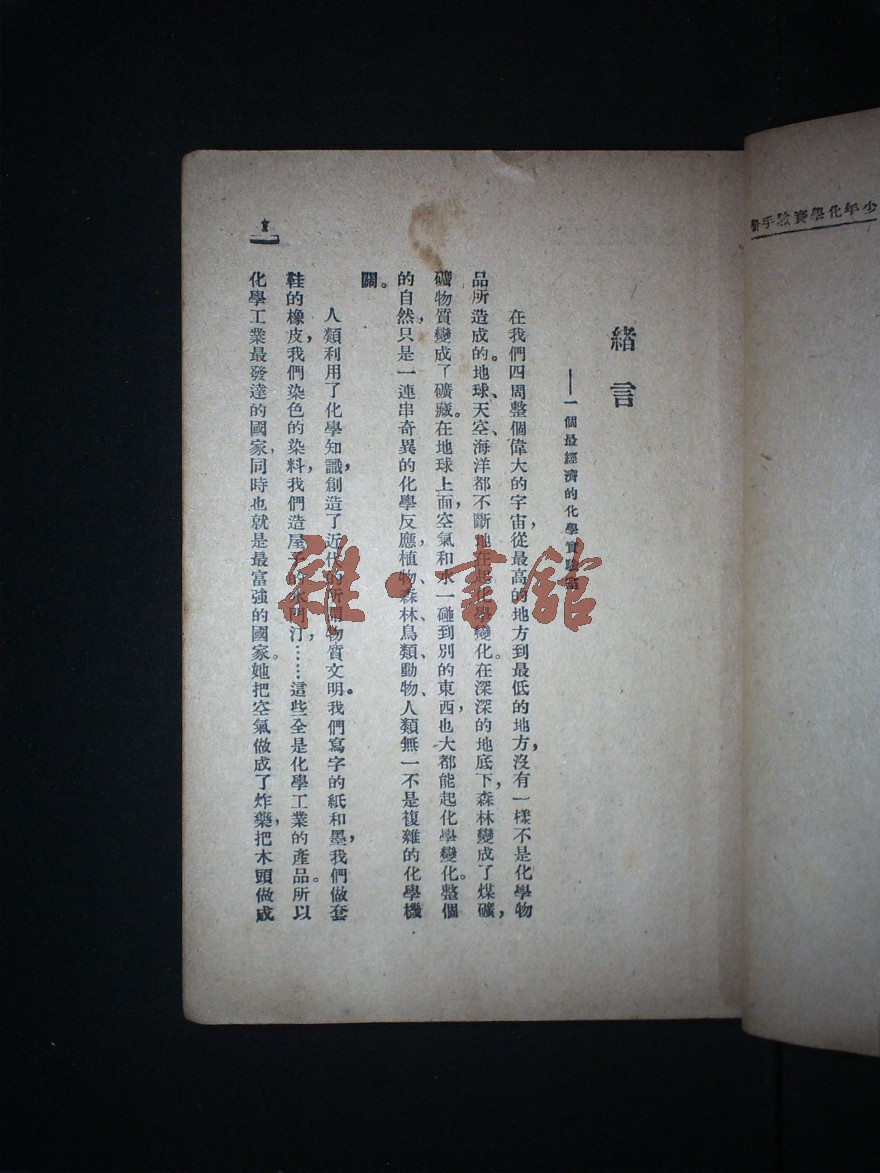 少年化學實驗手冊
緒言
——一個最經濟的化學實驗室
在我們四周整個偉大的宇宙,從最高的地方到最低的地方,沒有一樣不是化學物
品所造成的。地球、天空、海洋都不斷地在起化學變化。在深深的地底下,森林變成了煤礦,
礦物質變成了礦藏。在地球上面,空氣和水一碰到別的東西,也大都能起化學變化。整個
的自然,只是一連串奇異的化學反應,植物、森林、鳥類、動物、人類無一不是複雜的化學機
關。
人類利用了化學知識,創造了近代的所謂物質文明。我們寫字的紙和墨,我們做套
鞋的橡皮,我們染色的染料,我們造屋子的水門汀,……這些全是化學工業的產品。所以
化學工業最發達的國家,同時也就是最富強的國家。她把空氣做成了炸藥,把木頭做成
1
雜·書館